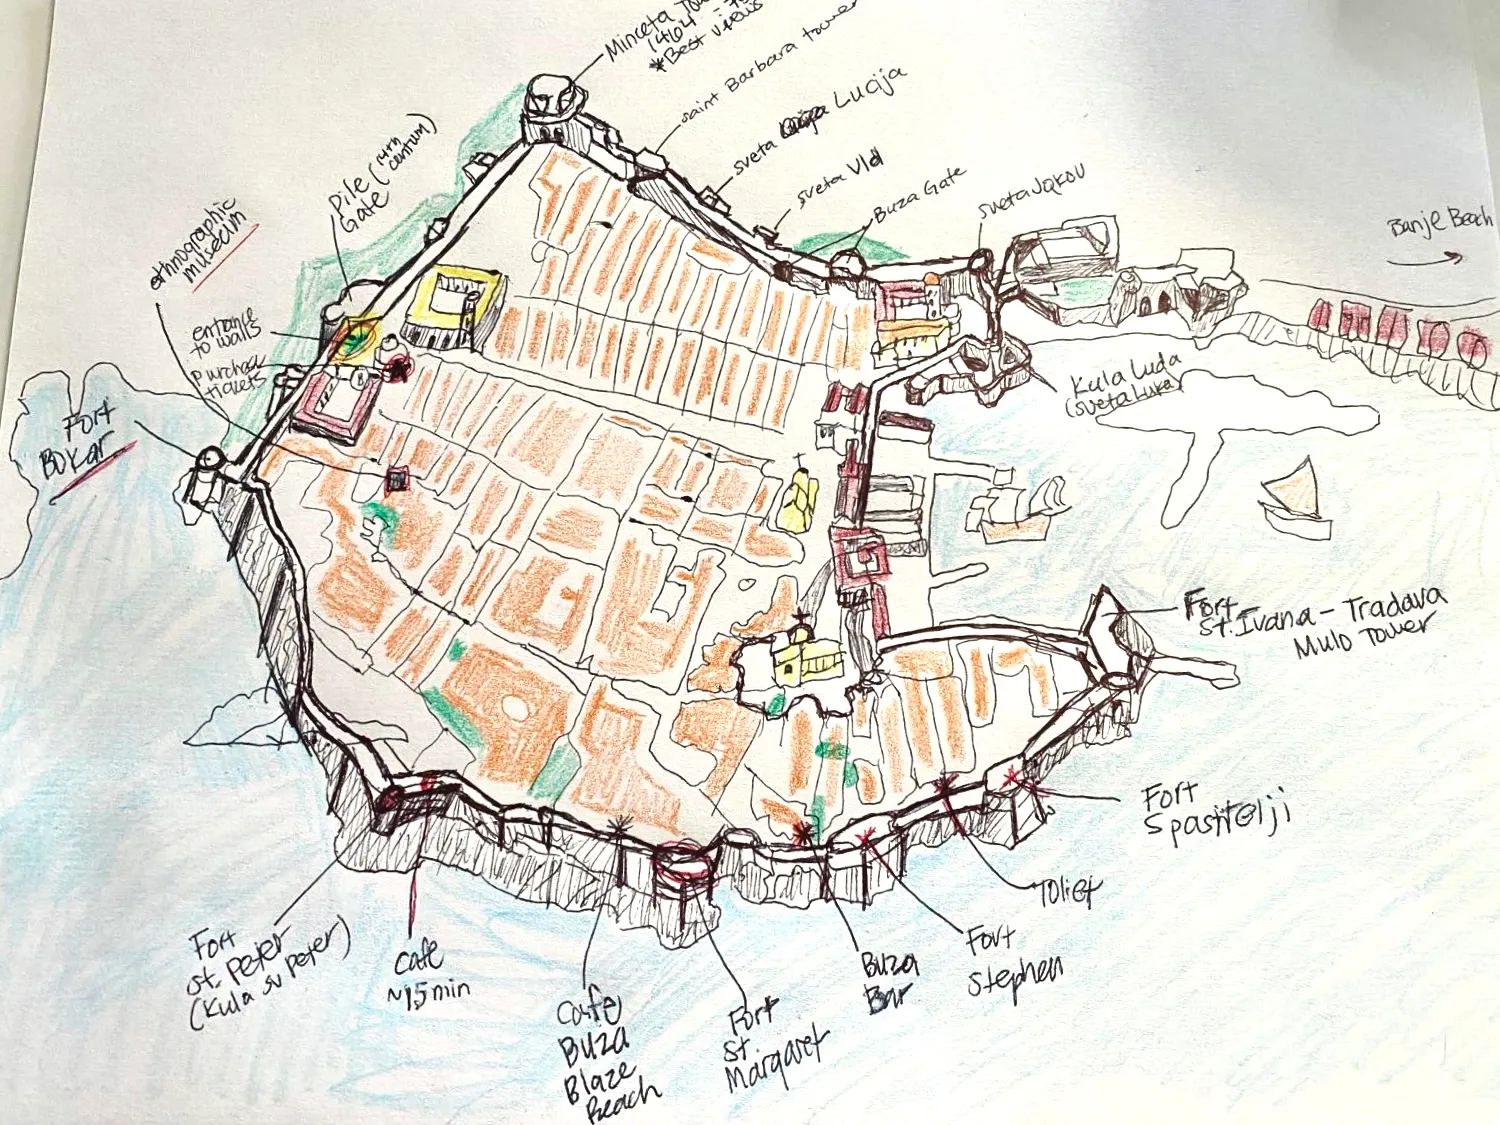 Minceta
1464
*Best views
saint Barbara tower
sveta Lucija
sveta Vld
Buza Gate
sveta Jakov
Banje Beach
Pile
Gate (14th
century)
ethnographic
museum
entrance
to walls
purchase
tickets
Fort
Bokar
Kula Luda
(sveta Luka)
Fort
St. Ivana - Tradava
Mulo Tower
Fort
Spasitelji
Toliet
Fort
Stephen
Buza
Bar
Fort
St
Margaret
Cafe
Buza
Blaze
Beach
Cafe
~15min
Fort
St. Peter
(Kula sv Peter)